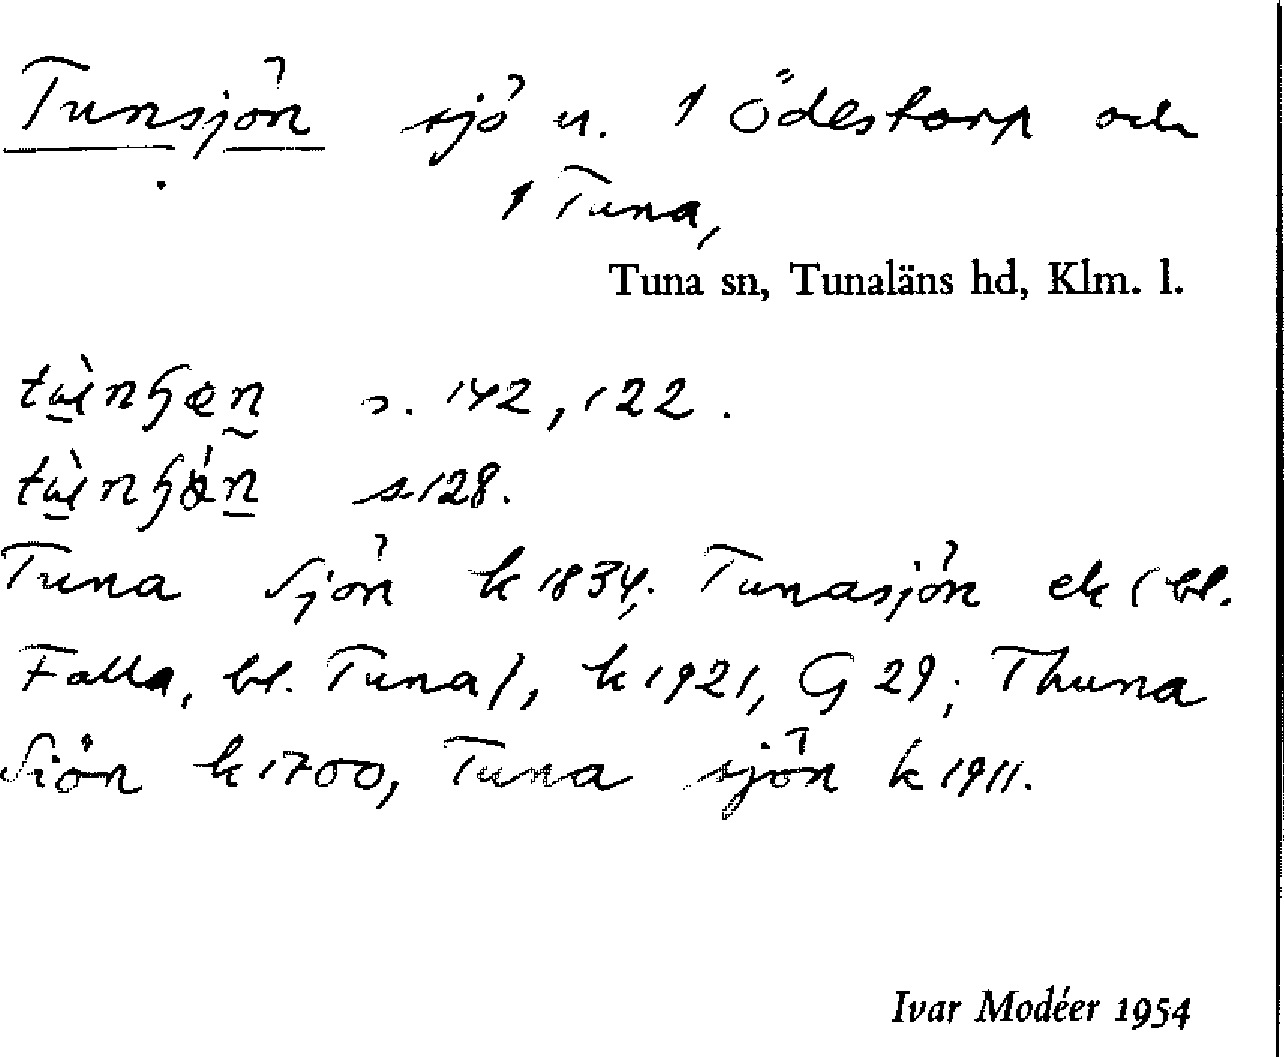 Tunsjön sjö u. 1 Ödestorp och
1 Tuna,
Tuna sn, Tunaläns hd, Klm. l.
s. 142, 122.
s 128.
Tuna Sjön k 1834; Tunasjön ek (bl.
Falla, bl. Tuna), k 1921, G 29; Thuna
Siön k 1700, Tuna sjön k 1911.
Ivar Modéer 1954